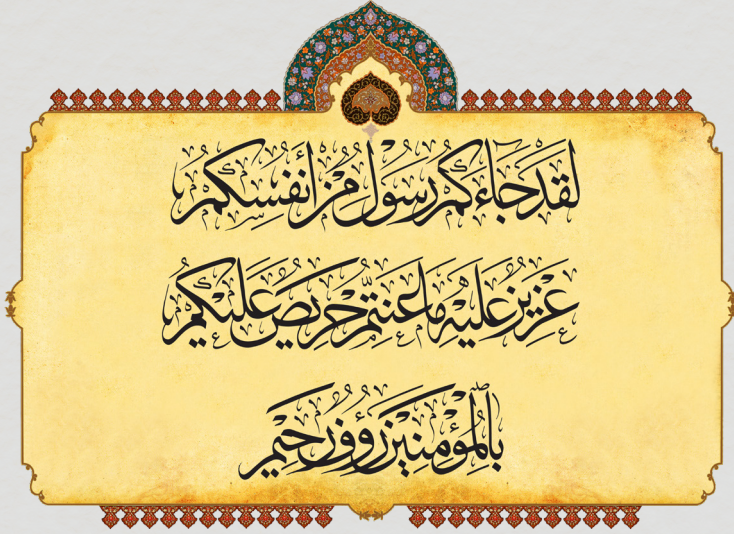 لَقَدْ جَاءَكُمْ رَسُولٌ مِنْ أَنْفُسِكُمْ
عَزِيزٌ عَلَيْهِ مَا عَنِتُّمْ حَرِيصٌ عَلَيْكُمْ
بِالْمُؤْمِنِينَ رَؤُوفٌ رَحِيمٌ